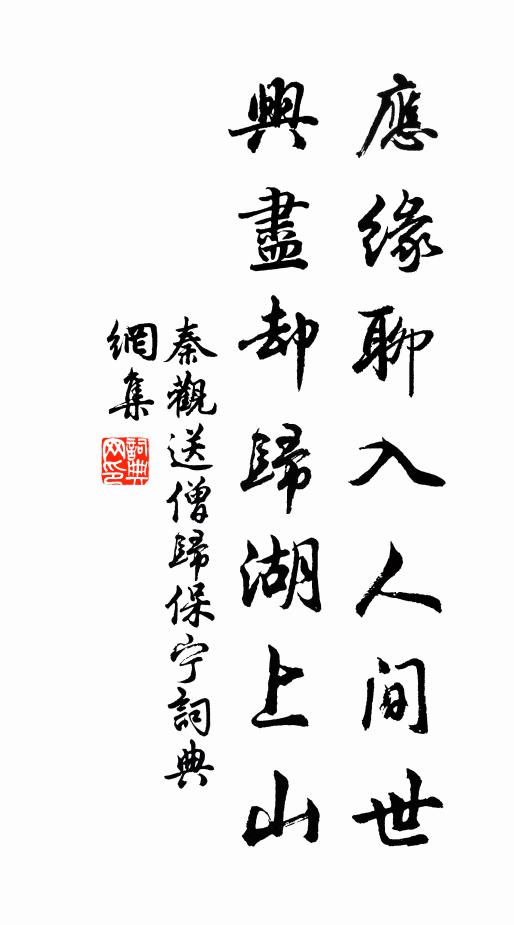 應緣聊入人间世
興盡却歸湖上山
秦觀送僧歸保宁詞典
網集
詞典网印